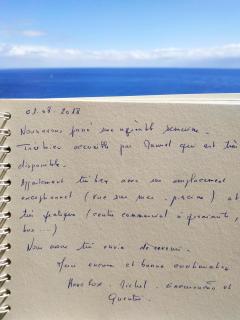 02.08.2018
Nous avons passé une agréable semaine.
Très bien accueillis par Manuel qui est très
disponible.
Appartement très bien avec un emplacement
exceptionnel (vue sur mer, piscine) et
très pratique (centre commercial à proximité,
bus ...)
Nous avons très envie de revenir.
Merci encore et bonne continuation
Michel, et
Quentin.